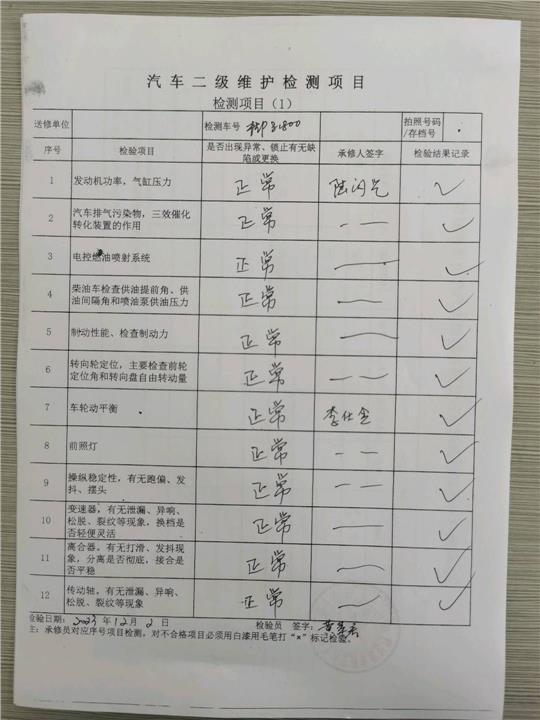 汽车二级维护检测项目
检测项目（1）
送修单位 检测车号 拍照号码/存档号
序号 检验项目 是否出现异常、锁止有无缺陷或更换 承修人签字 检验结果记录
1 发动机功率，气缸压力 正常 ✓
2 汽车排气污染物，三效催化转化装置的作用 正常 — — ✓
3 电控燃油喷射系统 正常 — ✓
4 柴油车检查供油提前角、供油间隔角和喷油泵供油压力 正常 — ✓
5 制动性能、检查制动力 正常 — ✓
6 转向轮定位，主要检查前轮定位角和转向盘自由转动量 正常 — — ✓
7 车轮动平衡 正常 李仕金 ✓
8 前照灯 正常 — — ✓
9 操纵稳定性，有无跑偏、发抖、摆头 正常 — — ✓
10 变速器，有无泄漏、异响、松脱、裂纹等现象，换档是否轻便灵活 正常 — ✓
11 离合器。有无打滑、发抖现象，分离是否彻底，接合是否平稳 正常 — ✓
12 传动轴。有无泄漏、异响、松脱、裂纹等现象 正常 — ✓
检验日期：2023年12月2日 检验员 签字：
主：承修员对应序号项目检测，对不合格项目必须用白漆用毛笔打“×”标记检验。